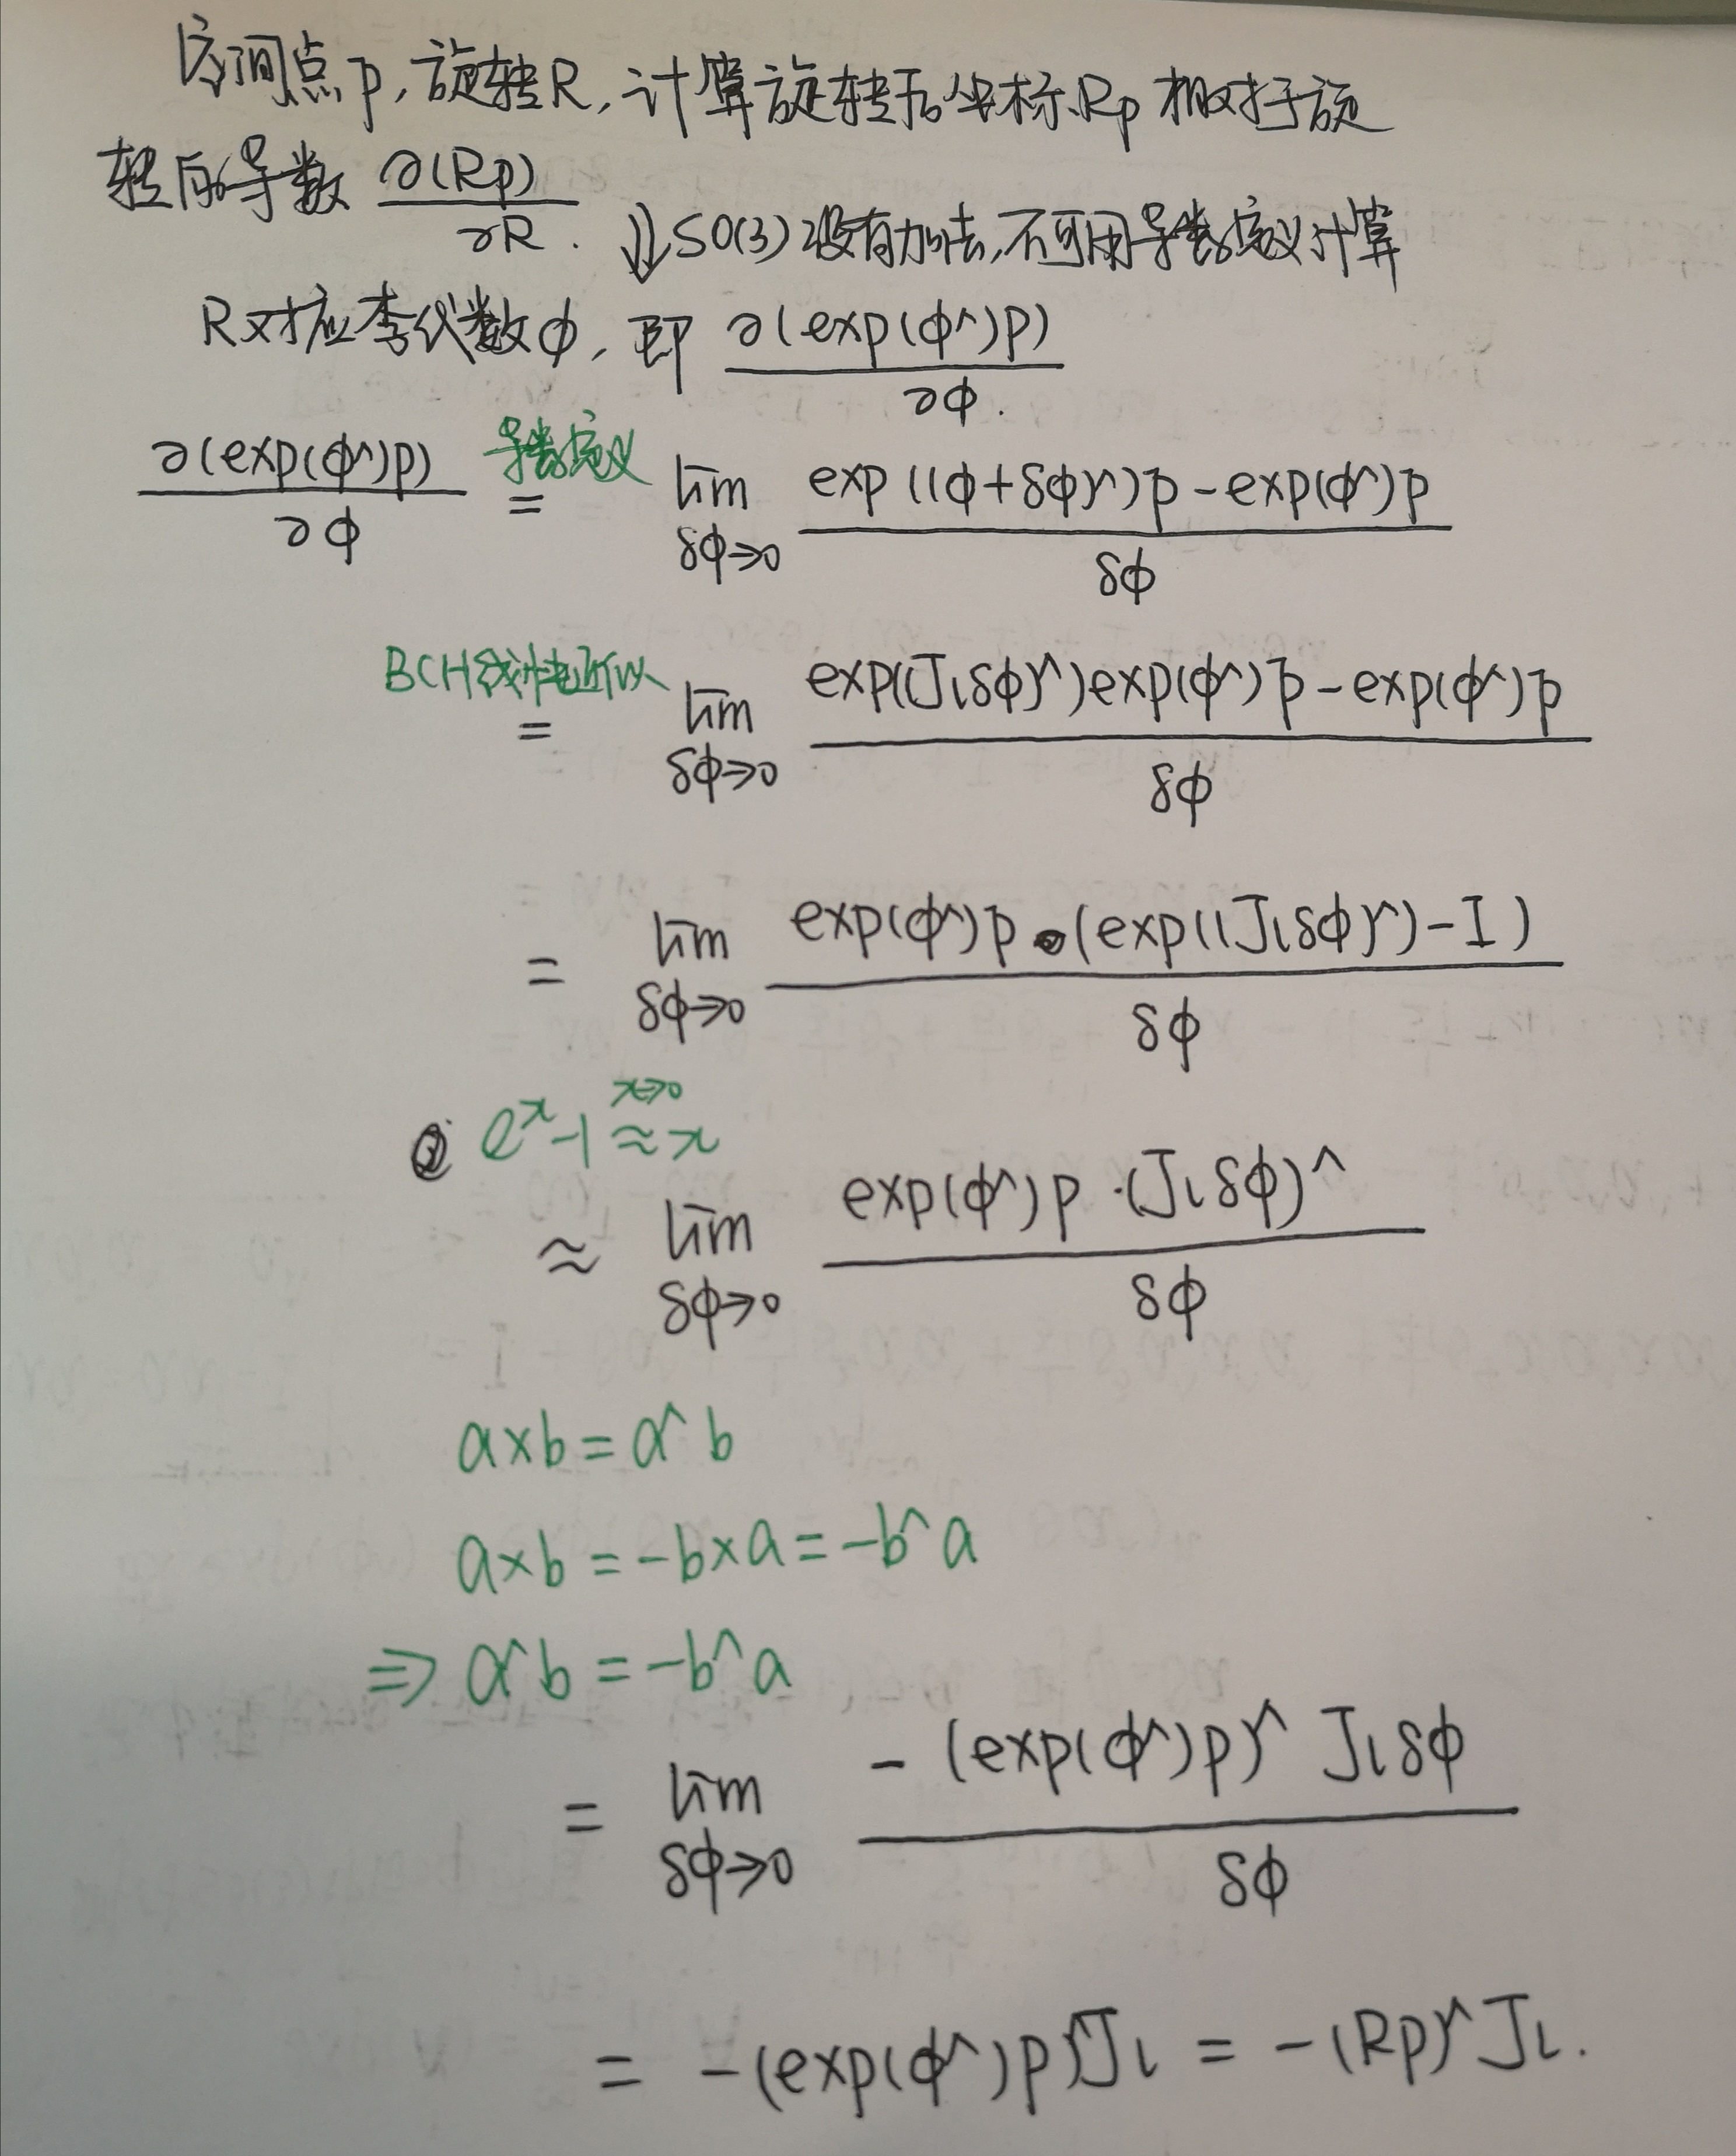 空间点p,旋转R,计算旋转后坐标Rp相对于旋
转的导数 ∂(Rp)/∂R. ⇓SO(3)没有加法,不可用导数定义计算
R对应李代数φ,即 ∂(exp(φ^)p)/∂φ.
∂(exp(φ^)p)/∂φ 导数定义= lim δφ→0 exp((φ+δφ)^)p-exp(φ^)p/δφ
BCH线性近似= lim δφ→0 exp((Jlδφ)^)exp(φ^)p-exp(φ^)p/δφ
= lim δφ→0 exp(φ^)p·(exp((Jlδφ)^)-I)/δφ
e^x-1 ≈ x x→0
≈ lim δφ→0 exp(φ^)p·(Jlδφ)^/δφ
a×b=a^b
a×b=-b×a=-b^a
⇒ a^b=-b^a
= lim δφ→0 -(exp(φ^)p)^Jlδφ/δφ
= -(exp(φ^)p)^Jl = -(Rp)^Jl.